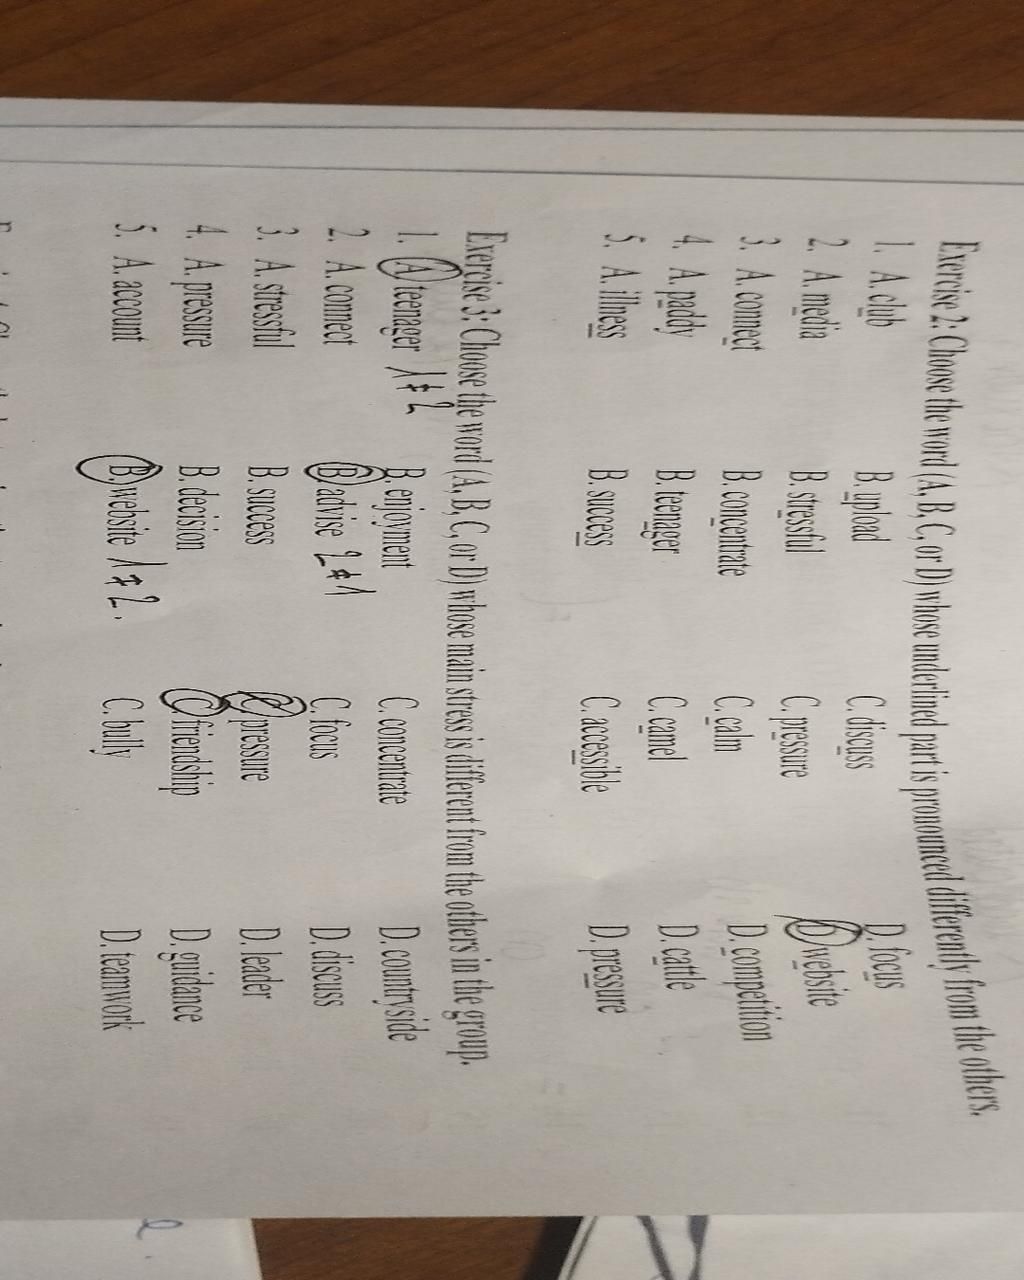 Exercise 2: Choose the word (A, B, C, or D) whose underlined part is pronounced differently from the others.
1. A. club B. upload C. discuss D. focus
2. A. media B. stressful C. pressure D. website
3. A. connect B. concentrate C. calm D. competition
4. A. paddy B. teenager C. camel D. cattle
5. A. illness B. success C. accessible D. pressure
Exercise 3: Choose the word (A, B, C, or D) whose main stress is different from the others in the group.
1. A teenager 1 ≠ 2 B. enjoyment C. concentrate D. countryside
2. A. connect B advise 2 ≠ 1 C. focus D. discuss
3. A. stressful B. success C pressure D. leader
4. A. pressure B. decision C friendship D. guidance
5. A. account B. website 1 ≠ 2. C. bully D. teamwork